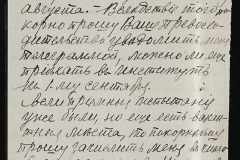 августа. - Вследствiи этого по-
корно прошу Ваше Превосхо-
дительство уведомить меня
телеграммой, можно ли мне
прiехать въ институтъ
на 1 му сентября.
Если прiемныя испытанiя
уже были, но еще есть вакан-
тныя места, то покорнейше
прошу зачислить меня въ число